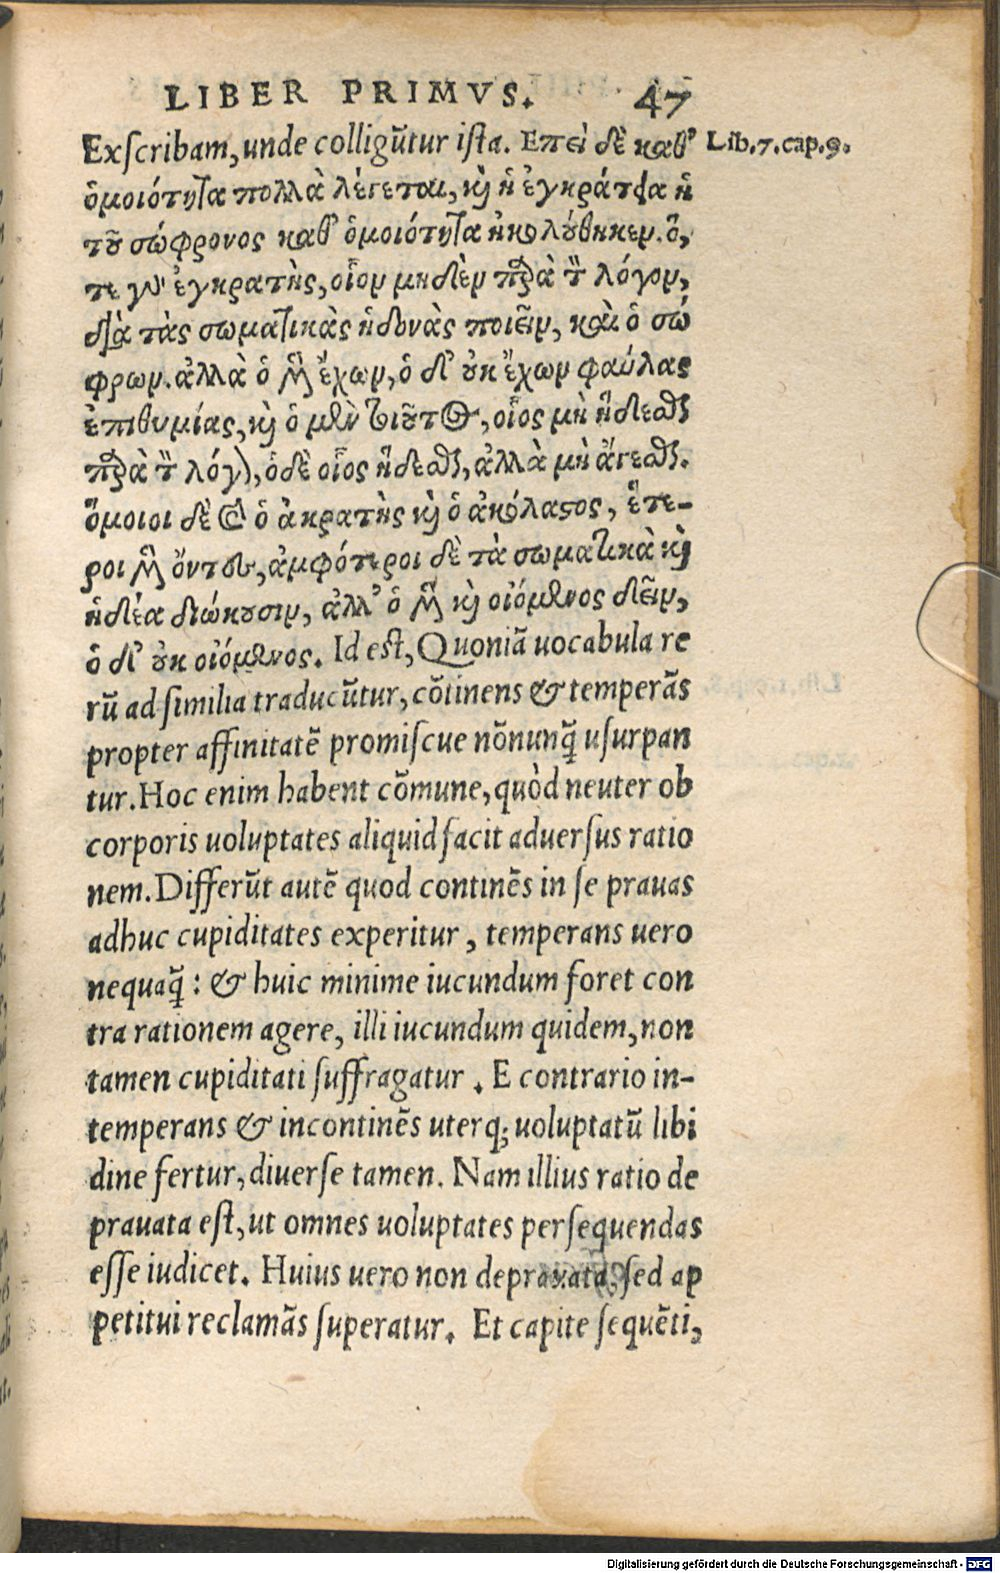 LIBER PRIMVS. 47
Exſcribam, unde colligũtur iſta. Επεὶ δὲ καθ’ Lib.7.cap.9.
ὁμοιότητα πολλὰ λέγεται, κὶ ἡ ἐγκράτεια ἡ
τοῦ σώφρονος καθ’ ὁμοιότητα ἠκολούθηκεν. ὅ,
τε γὰρ ἐγκρατὴς, οἷον μηδὲν παρὰ τὸν λόγον,
διὰ τὰς σωματικὰς ἡδονὰς ποιεῖν, καὶ ὁ σώ
φρων. ἀλλὰ ὁ μὲν ἔχων, ὁ δ’ οὐκ ἔχων φαύλας
ἐπιθυμίας, κὶ ὁ μὲν τοιοῦτος, οἷος μὴ ἥδεσθαι
παρὰ τὸν λόγον, ὁ δὲ οἷος ἥδεσθαι, ἀλλὰ μὴ ἄγεσθαι.
ὅμοιοι δὲ καὶ ὁ ἀκρατὴς κὶ ὁ ἀκόλαστος, ἕτε-
ροι μὲν ὄντες, ἀμφότεροι δὲ τὰ σωματικὰ κὶ
ἡδέα διώκουσιν, ἀλλ’ ὁ μὲν κὶ οἰόμενος δεῖν,
ὁ δ’ οὐκ οἰόμενος. Id eſt, Quoniã uocabula re
rũ ad ſimilia traducũtur, cõtinens & temperãs
propter affinitatẽ promiſcue nõnunq̃ uſurpan
tur. Hoc enim habent cõmune, quòd neuter ob
corporis uoluptates aliquid facit aduerſus ratio
nem. Differũt autẽ quod continẽs in ſe prauas
adhuc cupiditates experitur, temperans uero
nequaq̃: & huic minime iucundum foret con
tra rationem agere, illi iucundum quidem, non
tamen cupiditati ſuffragatur. E contrario in-
temperans & incontinẽs uterq; uoluptatũ libi
dine fertur, diuerſe tamen. Nam illius ratio de
prauata eſt, ut omnes uoluptates perſequendas
eſſe iudicet. Huius uero non deprauata, ſed ap
petitui reclamãs ſuperatur. Et capite ſequẽti,
Digitalisierung gefördert durch die Deutsche Forschungsgemeinschaft - DFG